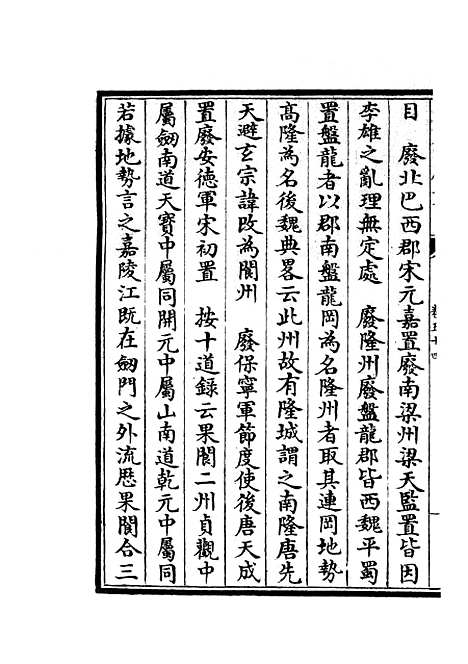 目　廢北巴西郡宋元嘉置廢南梁州梁天監置皆因
李雄之亂理無定處　廢隆州廢盤龍郡皆西魏平蜀
置盤龍者以郡南盤龍岡為名隆州者取其連岡地勢
髙隆為名後魏典畧云此州故有隆城謂之南隆唐先
天避玄宗諱改為閬州　廢保寧軍節度使後唐天成
置廢安德軍宋初置　按十道録云果閬二州貞觀中
屬劔南道天寶中屬同開元中屬山南道乾元中屬同
若據地勢言之嘉陵江既在劔門之外流厯果閬合三
卷五十四